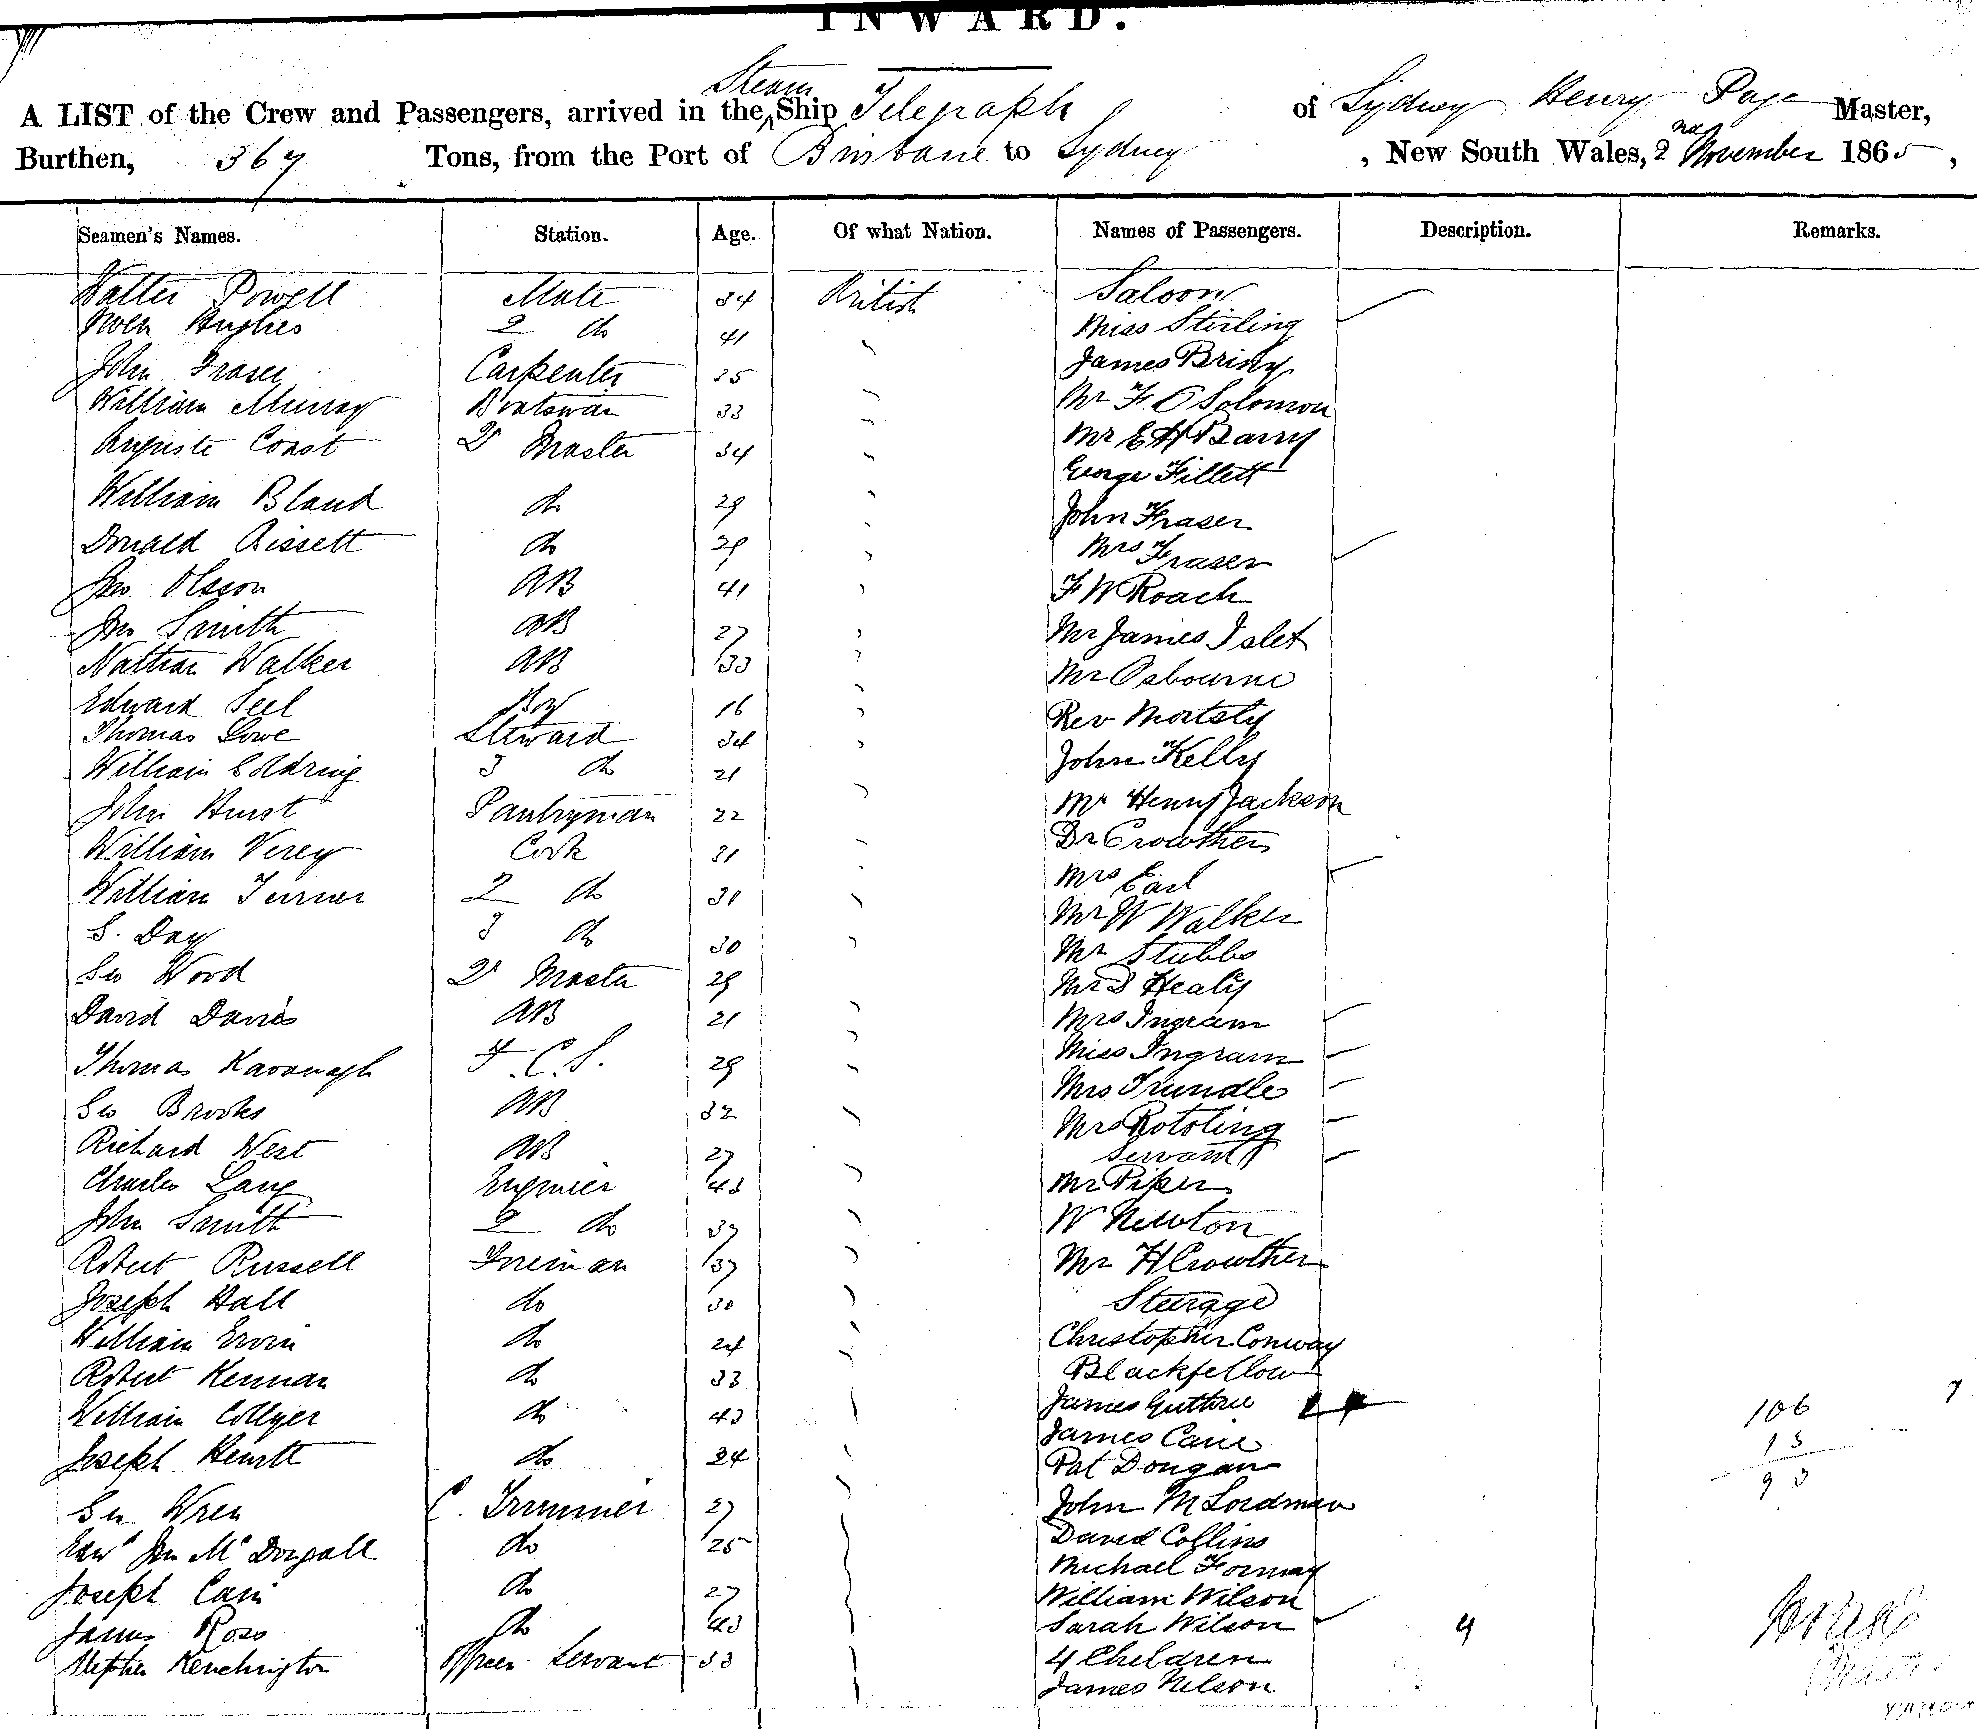 INWARD.
A LIST of the Crew and Passengers, arrived in the Steam Ship Telegraph of Sydney Henry Page Master,
Burthen, 367 Tons, from the Port of Brisbane to Sydney, New South Wales, 2nd November 1865,
Seamen's Names. Station. Age. Of what Nation. Names of Passengers. Description. Remarks.
Walter Powell Mate 34 British Saloon
Hughes 2 do 41 Miss Stirling
John Fraser Carpenter 25 James
William Murray Boatswan 33 Mr F. Solomon
Auguste Coast Qr Master 34 Mr E H Barry
George Fillett
William Bland do 29 John Fraser
Donald Bissett do 29 Mrs Fraser
Jno. Olsson AB 41 F W Roach
Jno Smith AB 27 Mr James Islet
Nathan Walker AB 33 Mr Osbourne
Edward Peel Boy 16 Rev
Thomas Lowe Steward 34 John Kelly
William Eldring 3 do 21 Mr Henry Jackson
John Hurst Pantryman 22 Dr Crowther
William Verey Cook 21 Mrs Earl
William Turner 2 do 30 Mr W Walker
S. Day 3 do 30 Mr Stubbs
Geo Wood Qr Master 29 Mr Healy
David Davies AB 21 Mrs Ingram
Thomas Kavanagh F. C. S. 29 Miss Ingram
Geo Brooks AB 32 Mrs Trundle
Richard West AB 27 Mrs
Servant
Charles Lang Engineer 43 Mr Piper
John Smith 2 do 37 W Newton
Robert Russell Fireman 37 Mr H Crowther
Joseph Hall do 30 Steerage
William Ervin do 24 Christopher Conway
Robert Kennan do 33 Blackfellow
William Collyer do 43 James Guthrie 106 7
James Cane 13
Joseph Hewitt do 24 Pat Dongan 93
Geo Wren C. Trimmer 27 John M Lordman
Edwd Jno McDougall do 25 David Collins
Michael
Joseph Cain do 27 William Wilson
James Ross do 43 Sarah Wilson 4
Stephen Kenchington Officers Servant 33 4 Children
James Nelson